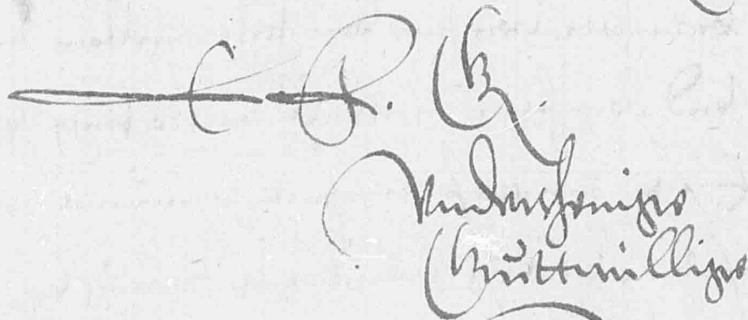 E. F. G.
Undertheniger
Guttwilliger